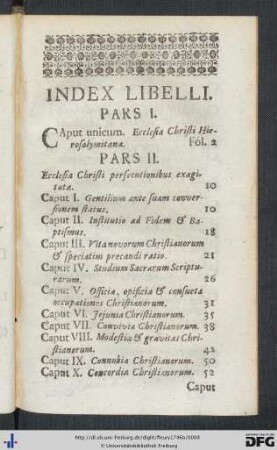 INDEX LIBELLI.
PARS I.
CAput unicum. Ecclesia Christi Hie-
rosolymitana. Fol. 2
PARS II.
Ecclesia Christi persecutionibus exagi-
tata. 10
Caput I. Gentilium ante suam conver-
sionem status. 10
Caput II. Institutio ad Fidem & Ba-
ptismus. 18
Caput III. Vita novorum Christianorum
& speciatim precandi ratio. 21
Caput IV. Studium Sacrarum Scriptu-
rarum. 26
Caput V. Officia, opificia & consueta
occupationes Christianorum. 31
Caput VI. Jejunia Christianorum. 35
Caput VII. Convivia Christianorum. 38
Caput VIII. Modestia & gravitas Chri-
stianorum. 42
Caput IX. Connubia Christianorum. 50
Caput X. Concordia Christianorum. 52
Caput
http://dl.ub.uni-freiburg.de/diglit/fleury1746b/0008
© Universitätsbibliothek Freiburg
gefördert durch die
DFG